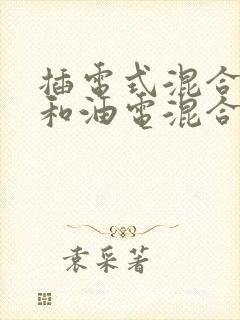 插電式混合
和油電混合
袁采著